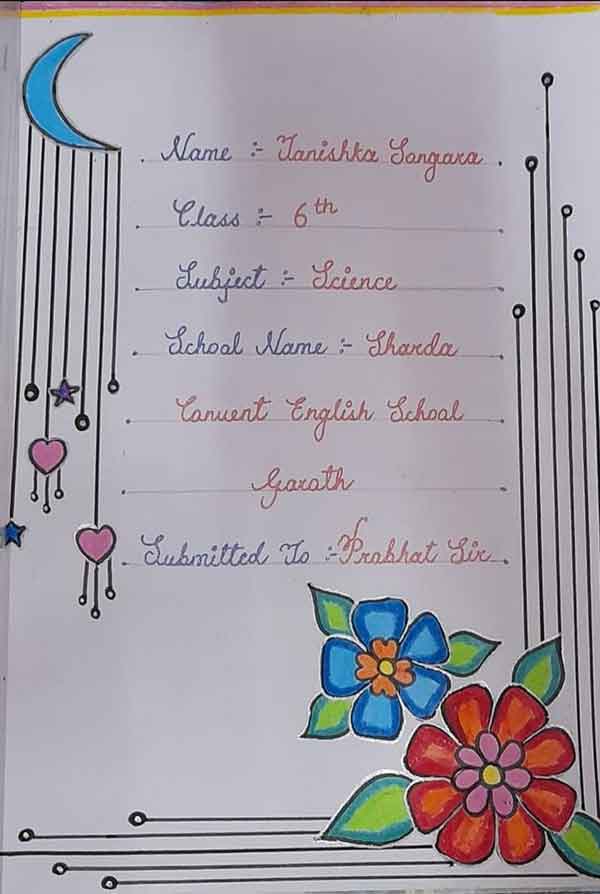 Name :- Tanishka Songara
Class :- 6th
Subject :- Science
School Name :- Sharda
Convent English School
Garoth
Submitted To :- Prabhat Sir